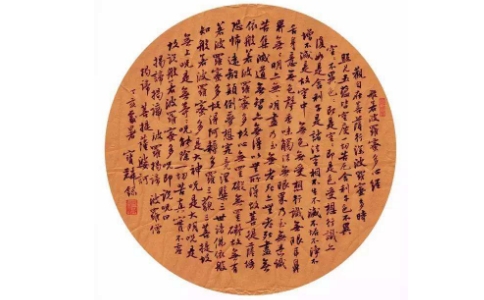 般若波羅蜜多心經
觀自在菩薩行深般若波羅蜜多時
照見五蘊皆空度一切苦厄舍利子色不異
空空不異色色即是空空即是色受想行識亦
復如是舍利子是諸法空相不生不滅不垢不淨不
增不減是故空中無色無受想行識無眼耳鼻
舌身意無色聲香味觸法無眼界乃至無意識
界無無明亦無無明盡乃至無老死亦無老死盡無
苦集滅道無智亦無得以無所得故菩提薩埵
依般若波羅蜜多故心無罣礙無罣礙故無有
恐怖遠離顛倒夢想究竟涅槃三世諸佛依般
若波羅蜜多故得阿耨多羅三藐三菩提故
知般若波羅蜜多是大神咒是大明咒是
無上咒是無等等咒能除一切苦真實不虛
故說般若波羅蜜多咒即說咒曰
揭諦揭諦波羅揭諦波羅僧
揭諦菩提薩婆訶
丁亥